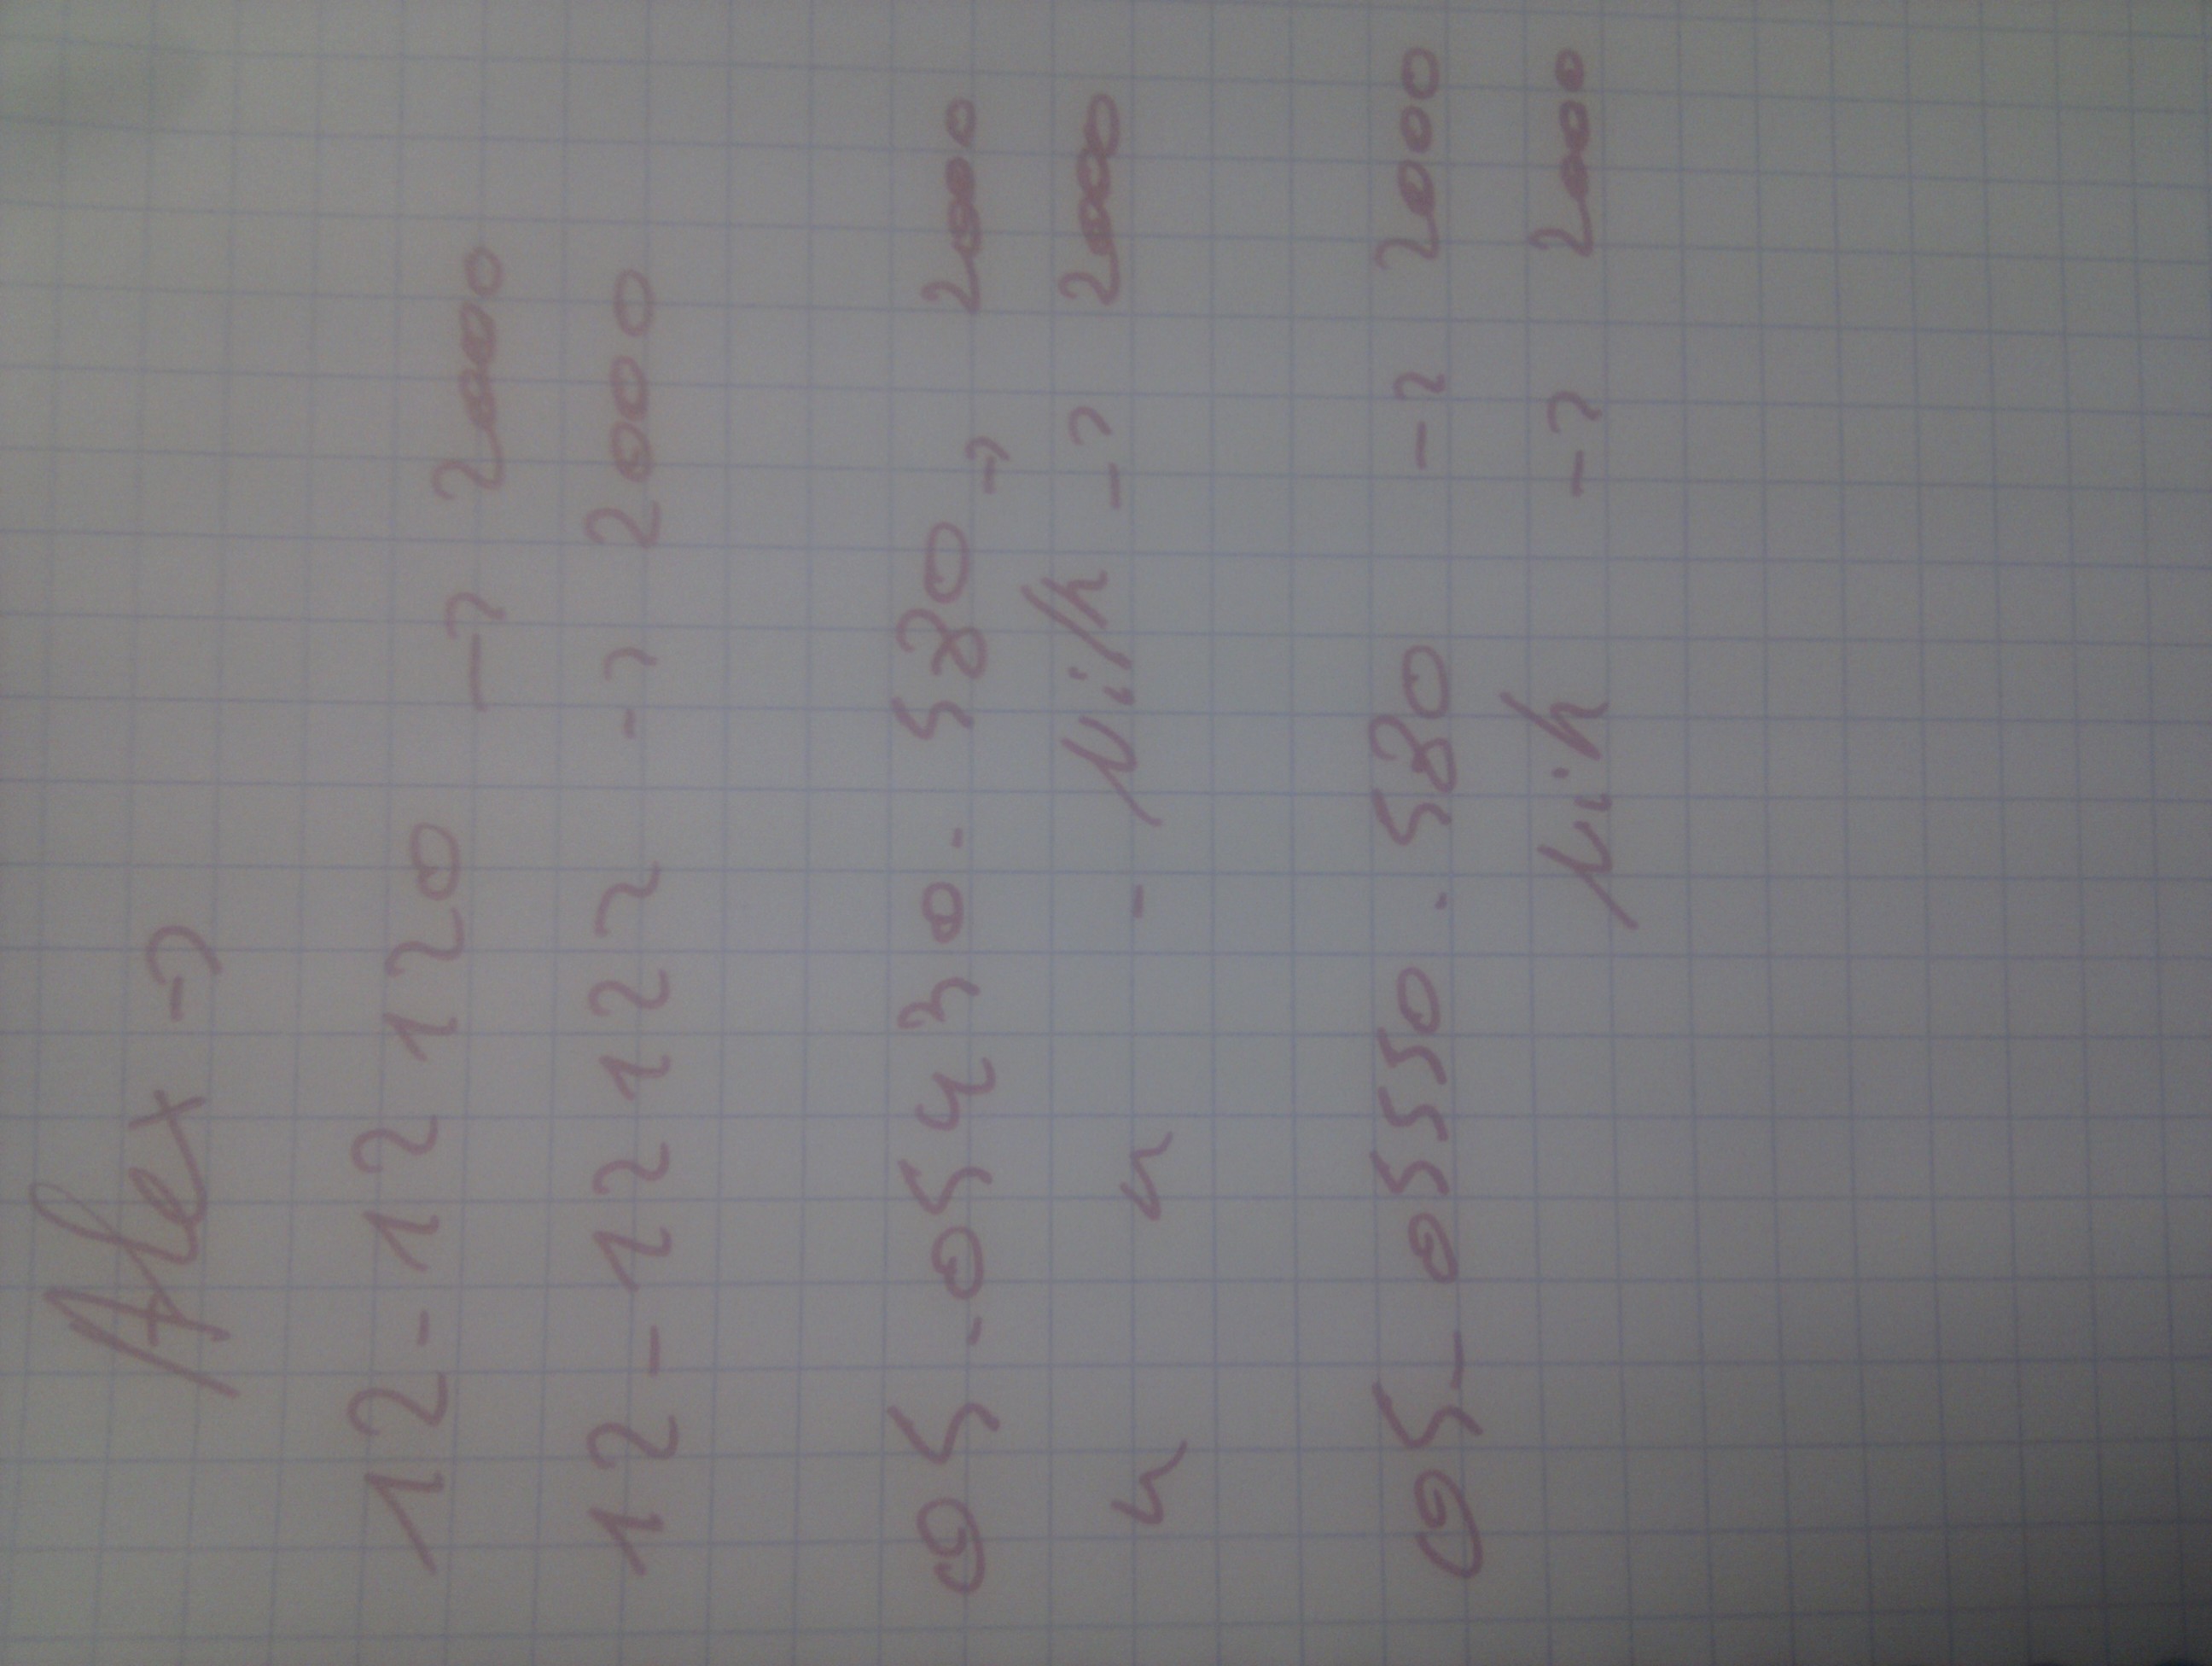 Alex →
12-12120 → 2000
12-12122 → 2000
95-05430. 580 → 2000
" " - → 2000
95-0550. 580 → 2000
→ 2000